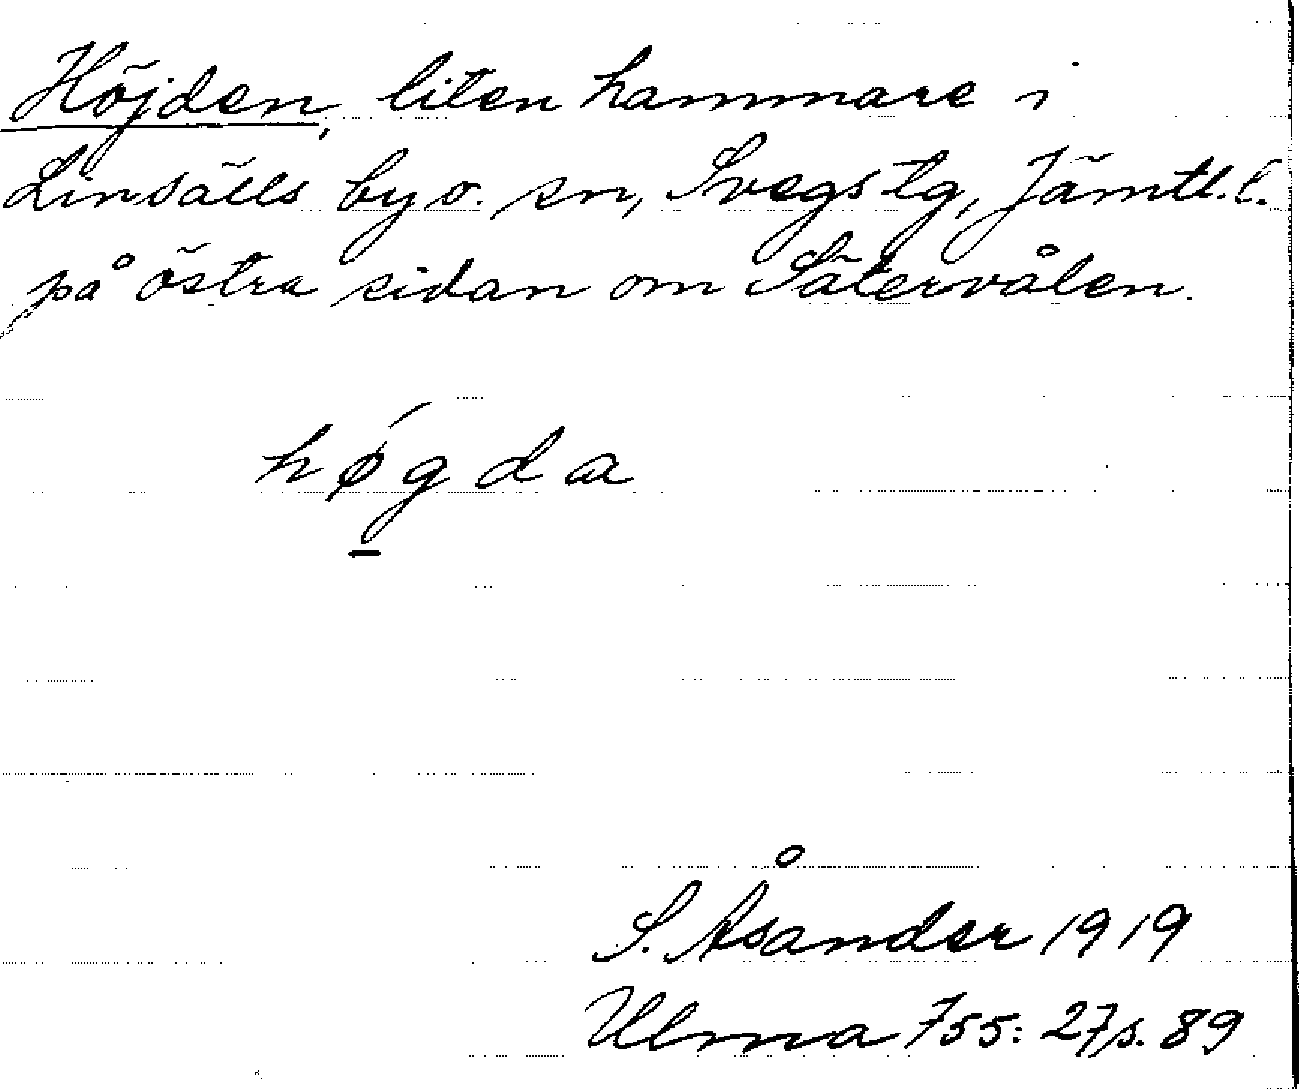 Höjden, liten hammare i
Linsälls by o. sn, Svegs tg, Jämtl. l.
på östra sidan om Sätervålen.
hǿgda
S. Åsander 1919
Ulma 755: 27 s. 89